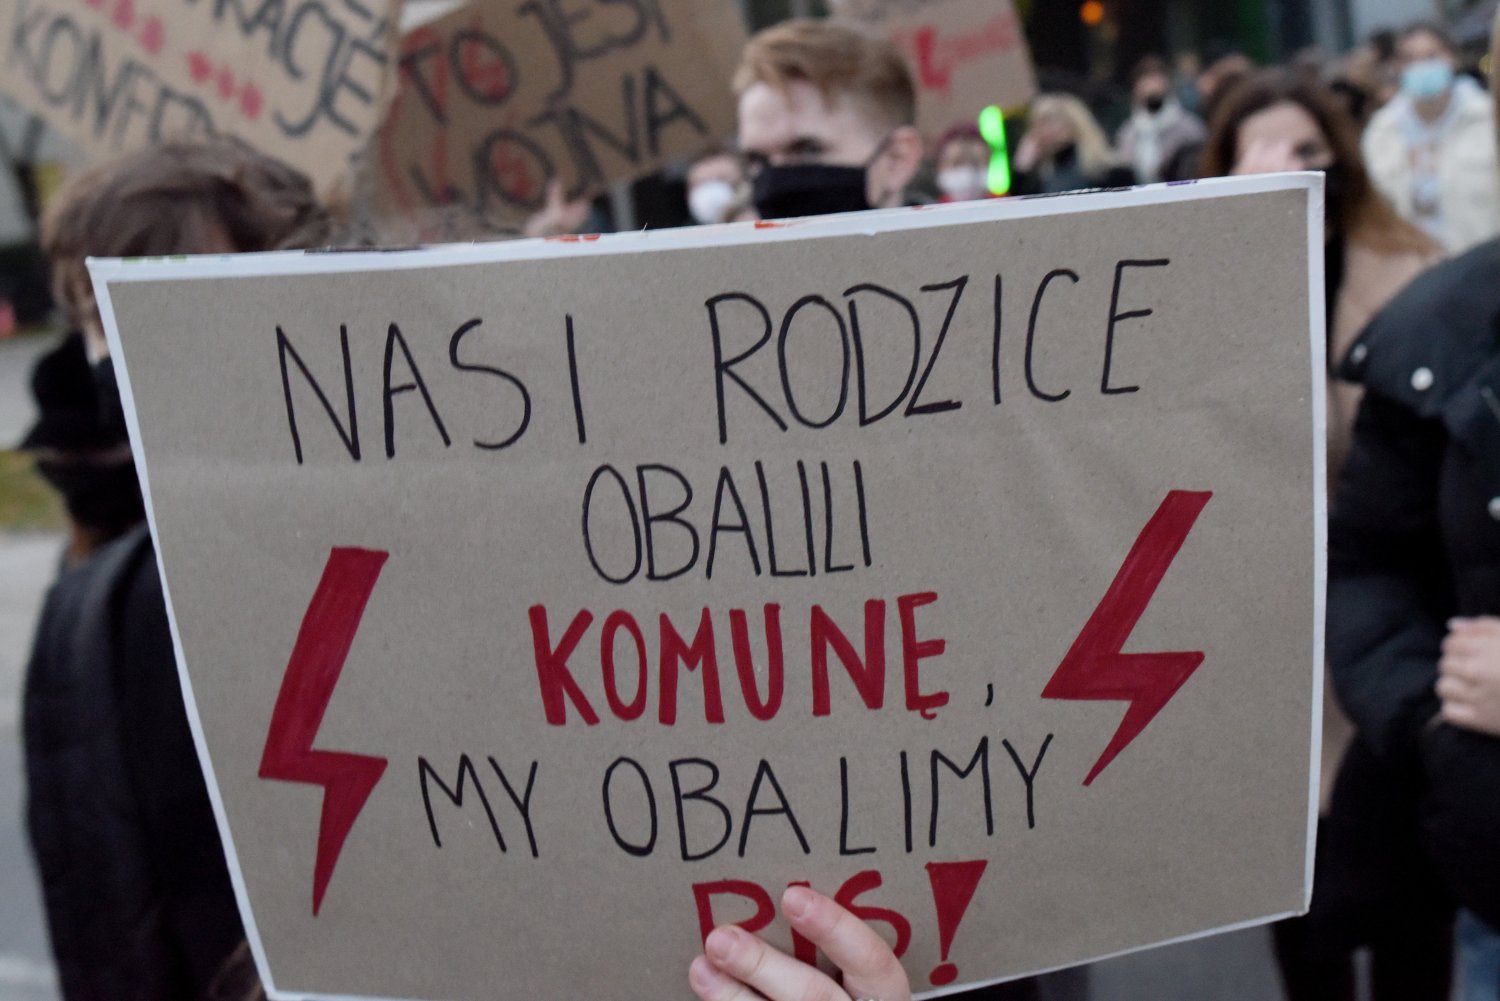 RACJĘ
KONFED
TO JEST
WOJNA
NASI RODZICE
OBALILI
KOMUNĘ,
MY OBALIMY
PIS!